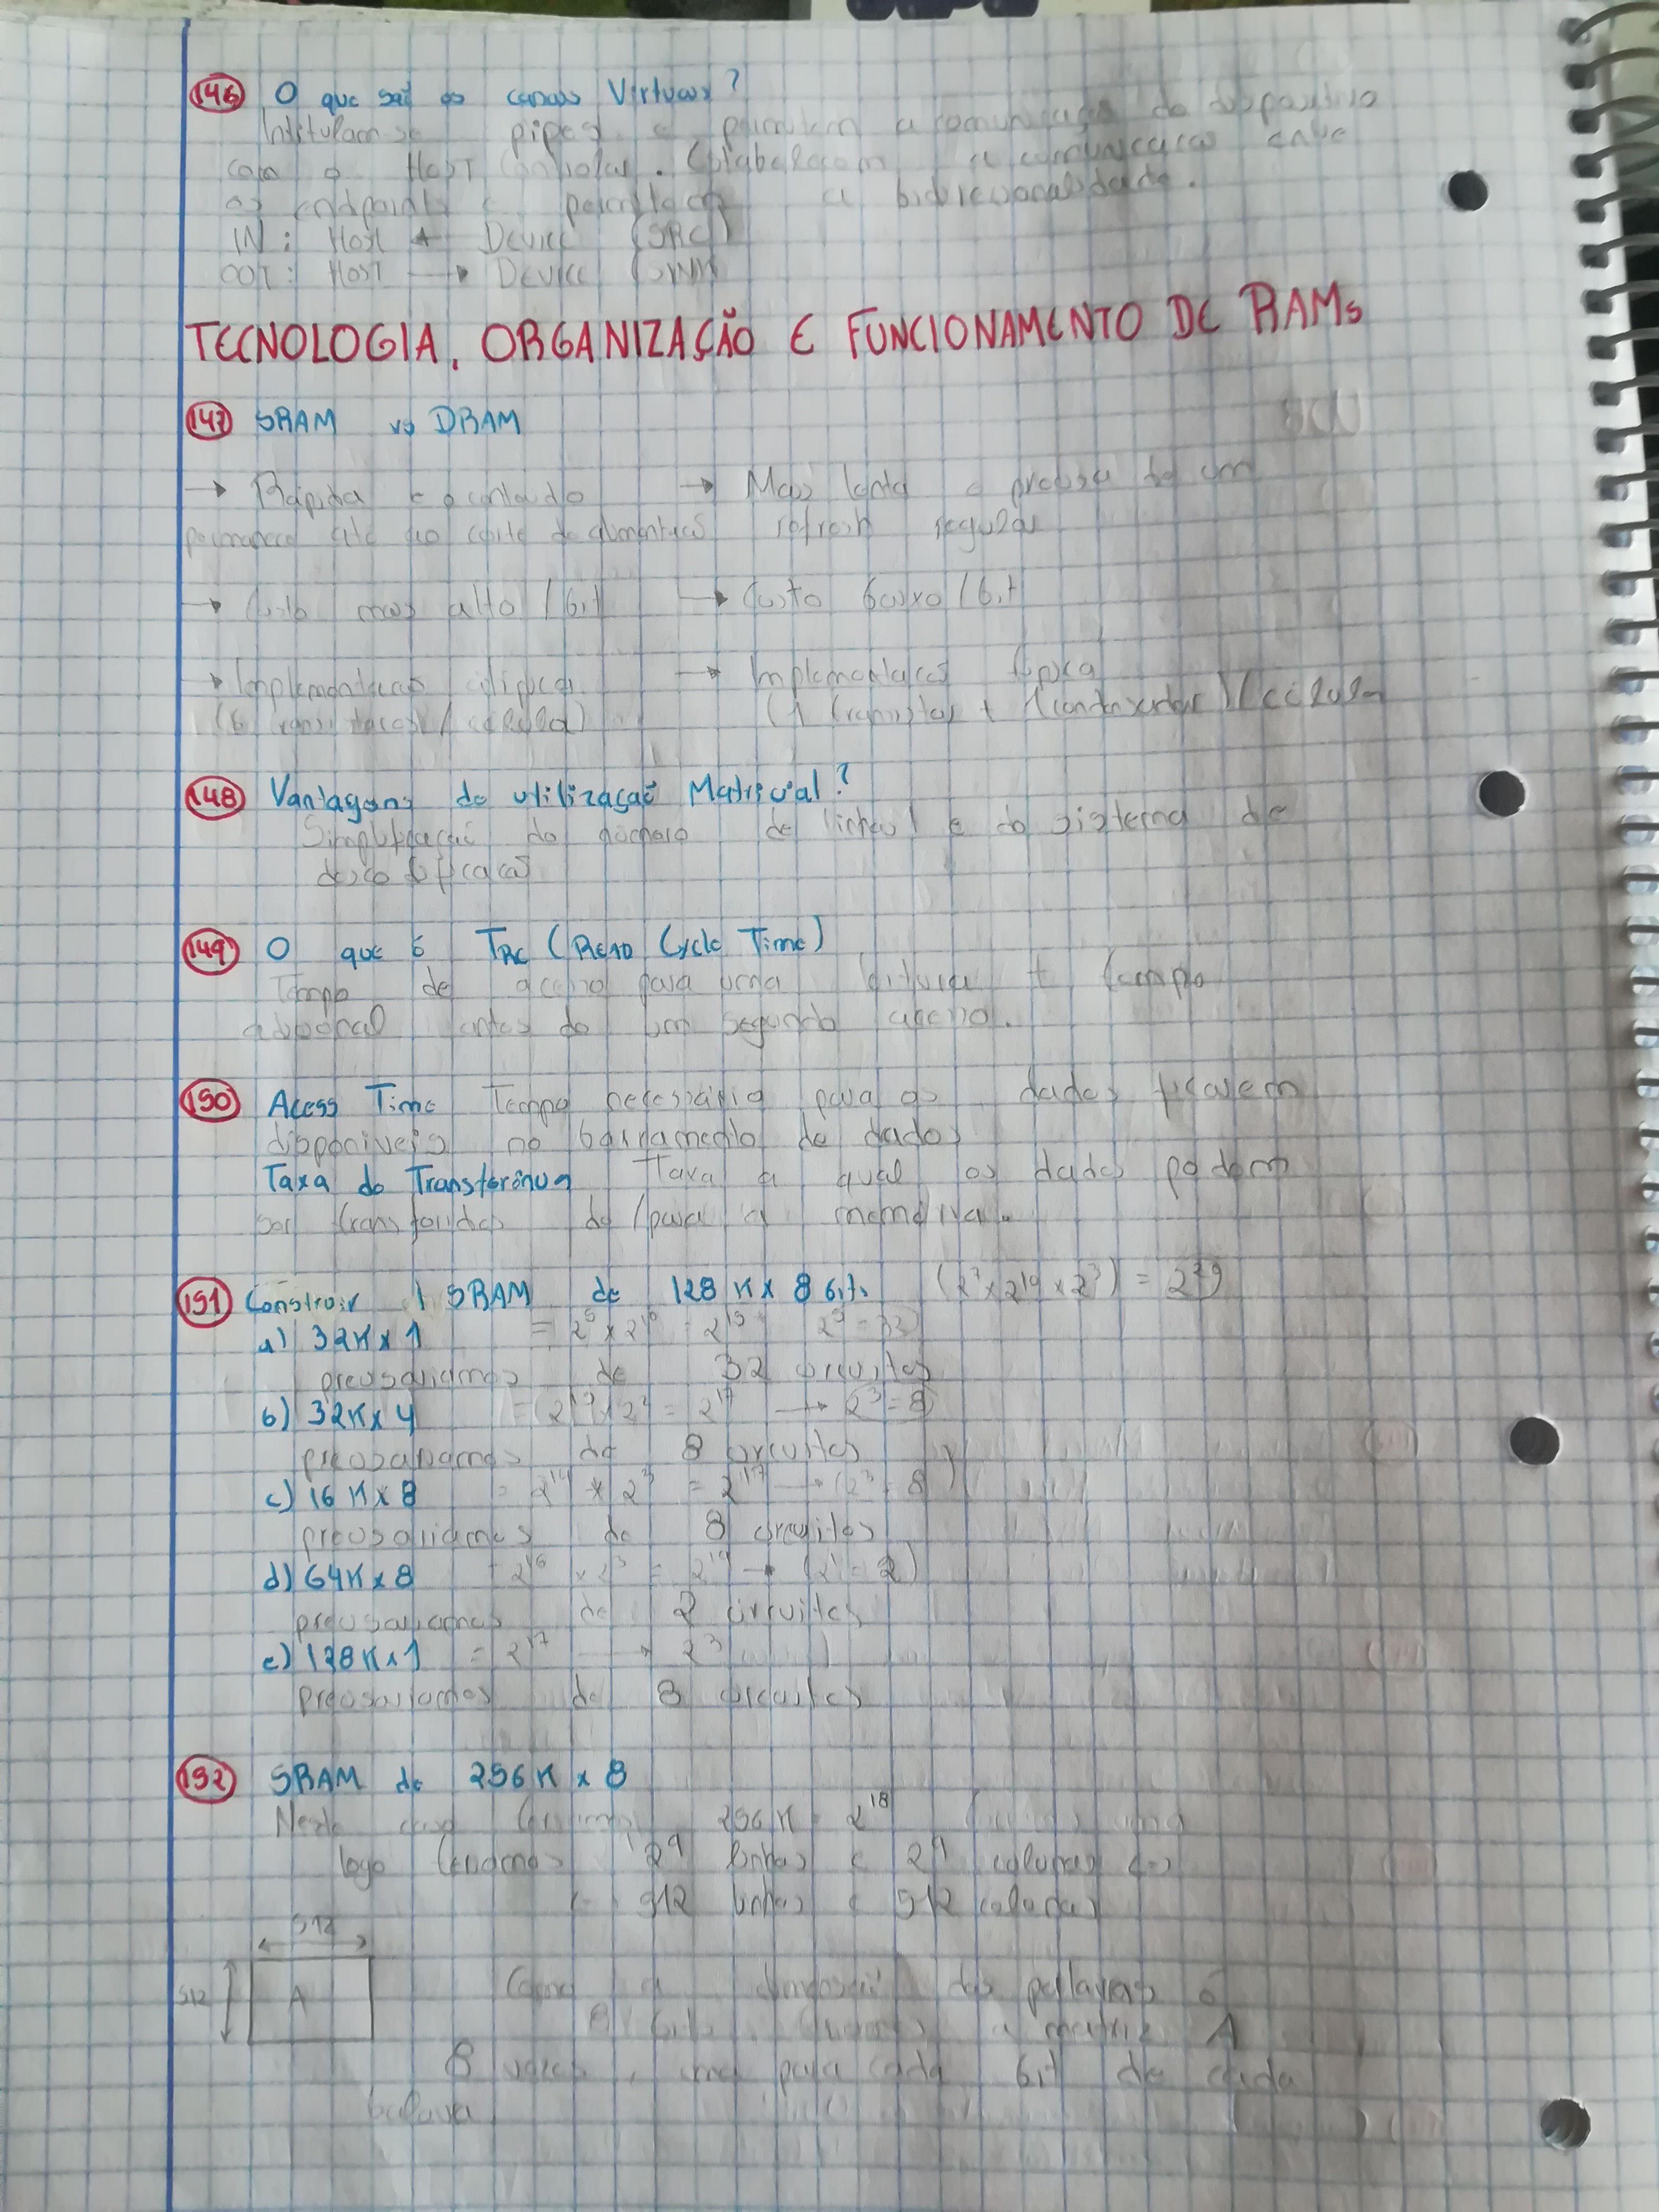 146 O que são os canais Virtuais?
Intitulam-se pipes e permitem a comunicação do dispositivo
com o Host Controler. Estabelecem a comunicação entre
os endpoints e permitem a bidirecionalidade.
IN: Host ← Device (SRC)
OUT: HOST → Device
TECNOLOGIA, ORGANIZAÇÃO E FUNCIONAMENTO DE RAMs
147 SRAM vs DRAM
→ Rápida e o conteúdo → Mais lenta e precisa de um
permanece até ao corte de alimentação refresh regular
→ Custo mais alto / bit → Custo baixo / bit
→ Implementação → Implementação típica
(6 transistores / célula) (1 transistor + 1 condensador) / célula
148 Vantagens da utilização Matricial?
Simplificação do número de linhas e do sistema de
descodificação
149 O que é TRC (READ Cycle Time)
Tempo de acesso para uma leitura + tempo
adicional antes de um segundo acesso.
150 Acess Time Tempo necessário para os dados ficarem
disponíveis no barramento de dados
Taxa de Transferência Taxa a qual os dados podem
ser transferidos de/para a memória.
151 Construir 1 SRAM de 128 K x 8 bits (2⁷ x 2¹⁰ x 2³) = 2²⁰
a) 32K x 1 = 2⁵ x 2¹⁰ = 2¹⁵ 2⁵ = 32
precisariamos de 32 circuitos
b) 32K x 4 = (2¹⁵ x 2² = 2¹⁷ → 2³ = 8)
precisariamos de 8 circuitos
c) 16 K x 8 = 2¹⁴ x 2³ = 2¹⁷ → (2³ = 8)
precisariamos de 8 circuitos
d) 64K x 8 = 2¹⁶ x 2³ = 2¹⁹ → (2¹ = 2)
precisariamos de 2 circuitos
e) 128K x 1 = 2¹⁷ → 2³
precisariamos de 8 circuitos
152 SRAM de 256 K x 8
Neste caso 256 K = 2¹⁸
logo teriamos 2⁹ linhas e 2⁹ colunas
512 linhas e 512 colunas
512
512 A
Como a dimensão das palavras é
8 bits, a matriz A
8 vezes, uma para cada bit de cada
palavra